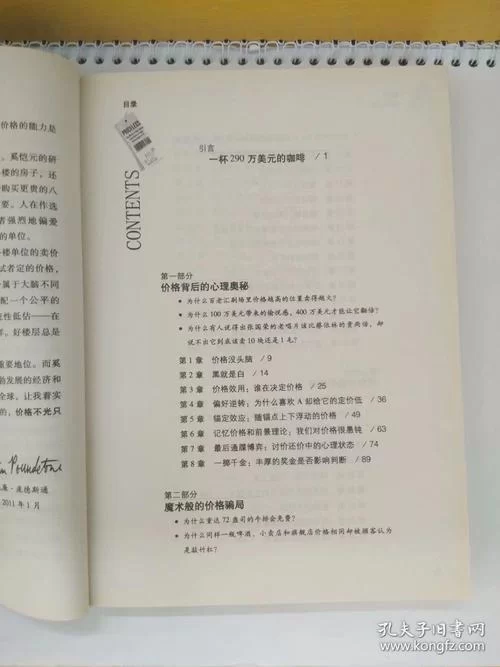 价格的能力是
。奚恺元的研
楼的房子,还
购买更贵的八
要。人在作选
者强烈地偏爱
的单位。
楼单位的卖价
试者定的价格,
属于大脑不同
配一个公平的
统性低估——在
样。好楼层总是
重要地位。而奚
勃发展的经济和
全球。让我着实
的,价格不光只
廉·庞德斯通
2011 年 1 月
目录
PRICELESS
CONTENTS
引言
一杯 290 万美元的咖啡 / 1
第一部分
价格背后的心理奥秘
• 为什么百老汇剧场里价格越高的位置卖得越火?
• 为什么 100 万美元带来的愉悦感,400 万美元才能让它翻倍?
• 为什么有人说得出张国荣的老唱片该比蔡依林的贵两倍,却
说不出它到底该卖 10 块还是 1 毛?
第 1 章 价格没头脑 / 9
第 2 章 黑就是白 / 14
第 3 章 价格效用:谁在决定价格 / 25
第 4 章 偏好逆转:为什么喜欢 A 却给它的定价低 / 36
第 5 章 锚定效应:随锚点上下浮动的价格 / 49
第 6 章 记忆价格和前景理论:我们对价格很愚钝 / 63
第 7 章 最后通牒博弈:讨价还价中的心理状态 / 74
第 8 章 一掷千金:丰厚的奖金是否影响判断 / 89
第二部分
魔术般的价格骗局
• 为什么重达 72 盎司的牛排会免费?
• 为什么同样一瓶啤酒,小卖店和旗舰店价格相同却被顾客认为
是敲竹杠?
孔夫子旧书网
www.kongfz.com